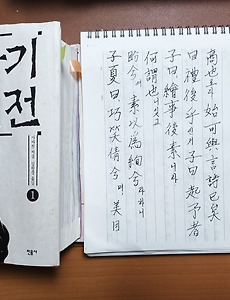 기
전
1
민음사
子夏曰 巧笑倩兮며 美目
盼兮여 素以為絢兮라하니
何謂也잇고
子曰 繪事後素니라
曰 禮後乎인저 子曰 起予者
商也로다 始可與言詩已矣